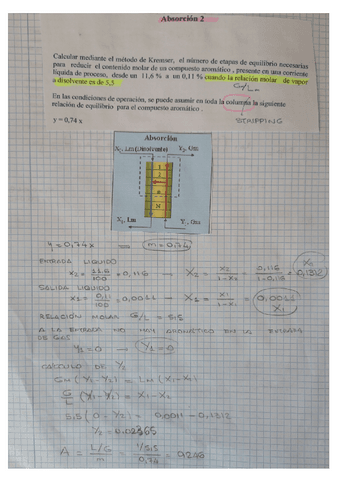 Absorción 2
Calcular mediante el método de Kremser, el número de etapas de equilibrio necesarias
para reducir el contenido molar de un compuesto aromático, presente en una corriente
líquida de proceso, desde un 11,6 % a un 0,11 % cuando la relación molar de vapor
a disolvente es de 5,5
G/Lm
En las condiciones de operación, se puede asumir en toda la columna la siguiente
relación de equilibrio para el compuesto aromático.
STRIPPING
y = 0,74 x
Absorción
X₂, Lm (Disolvente) Y₂, Gm
1
2
N
X₁, Lm Y₁, Gm
y = 0,74x = m = 0,74
ENTRADA LIQUIDO
x₂ = 11.6/100 = 0,116 → X₂ = x₂/1-x₂ = 0,1312 X₂
SALIDA LIQUIDO
x₁ = 0,11/100 = 0,0011 → X₁ = x₁/1-x₁ = 0,0011 X₁
RELACIÓN MOLAR G/L = 5,5
A LA ENTRADA NO HAY AROMÁTICO EN LA ENTRADA
DE GAS
Y₁ = 0
CALCULO DE Y₂
Gm (Y₁-Y₂) = Lm (X₁-X₂)
G/L (Y₁-Y₂) = X₁-X₂
5,5 (0-Y₂) = 0,0011-0,1312
Y₂ = 0.02365
A = L/G/m = 1/5,5/0,74 =